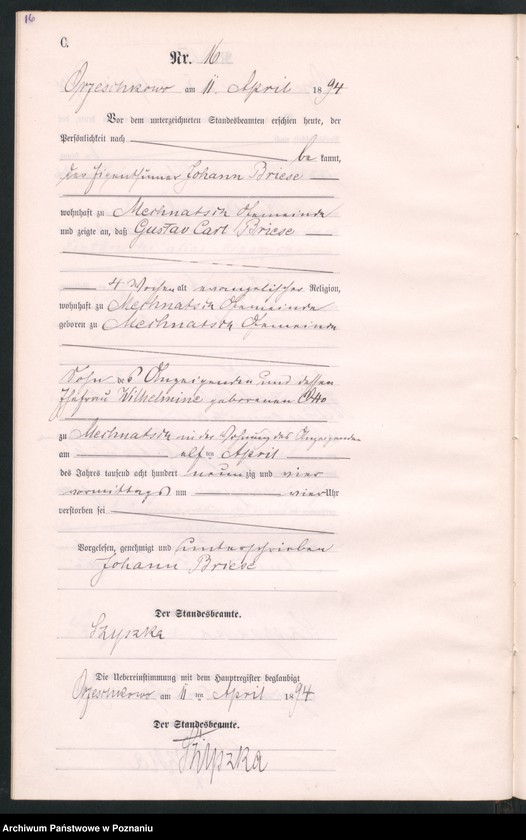 16
C.
Nr. 16
Orzeschkowo am 11. April 1894
Vor dem unterzeichneten Standesbeamten erschien heute, der
Persönlichkeit nach
be kannt,
der Eigenthümer Johann Briese
wohnhaft zu Mechnatsch Gemeinde
und zeigte an, daß Gustav Carl Briese
4 Wochen alt evangelischer Religion,
wohnhaft zu Mechnatsch Gemeinde
geboren zu Mechnatsch Gemeinde
Sohn des Anzeigenden und dessen
Ehefrau Wilhelmine geborenen
zu Mechnatsch in der Wohnung des Anzeigenden
am elften April
des Jahres tausend acht hundert neunzig und vier
vormittags um vier Uhr
verstorben sei
Vorgelesen, genehmigt und unterschrieben
Johann Briese
Der Standesbeamte.
Szyszka
Die Uebereinstimmung mit dem Hauptregister beglaubigt
Orzeschkowo am 11 ten April 1894
Der Standesbeamte.
Szyszka
Archiwum Państwowe w Poznaniu